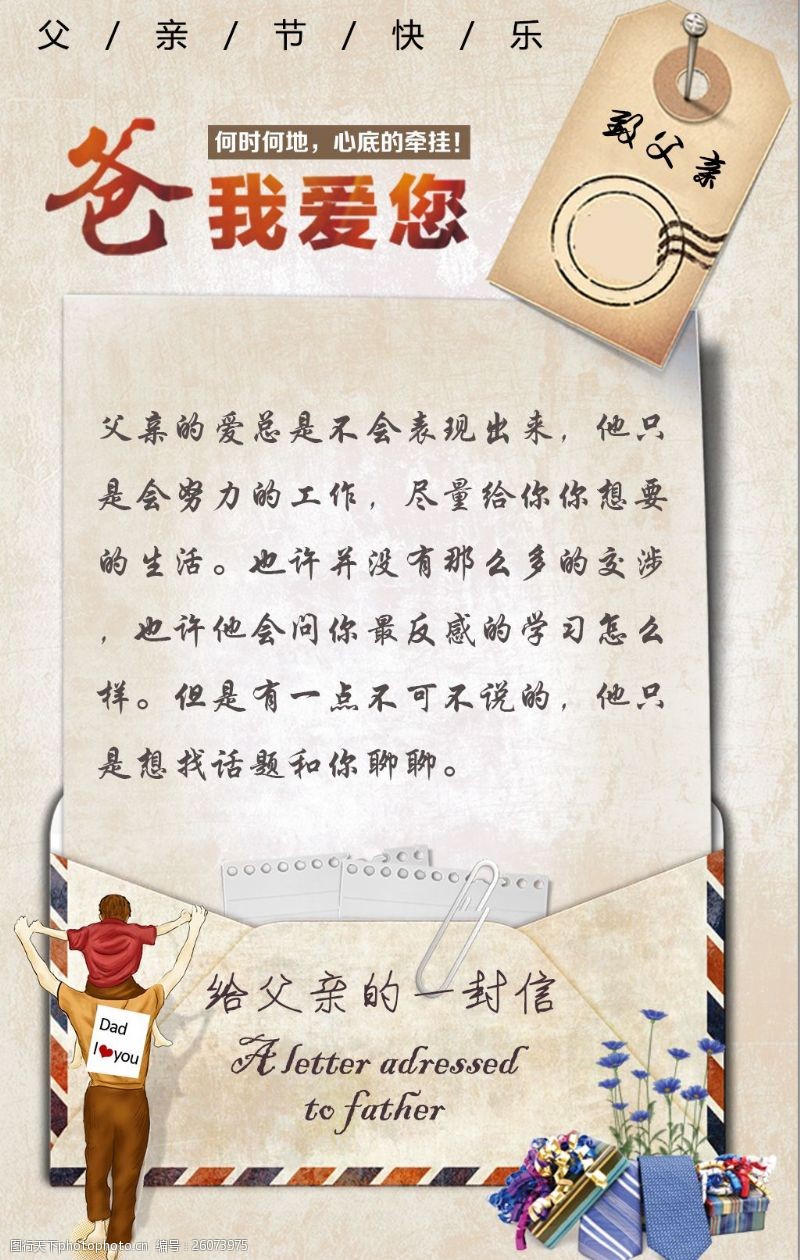 父/亲/节/快/乐
致父亲
何时何地，心底的牵挂！
爸我爱您
父亲的爱总是不会表现出来，他只
是会努力的工作，尽量给你你想要
的生活。也许并没有那么多的交涉
，也许他会问你最反感的学习怎么
样。但是有一点不可不说的，他只
是想找话题和你聊聊。
给父亲的一封信
A letter adressed
to father
Dad
I❤you
图行天下photophoto.cn 编号：26073975